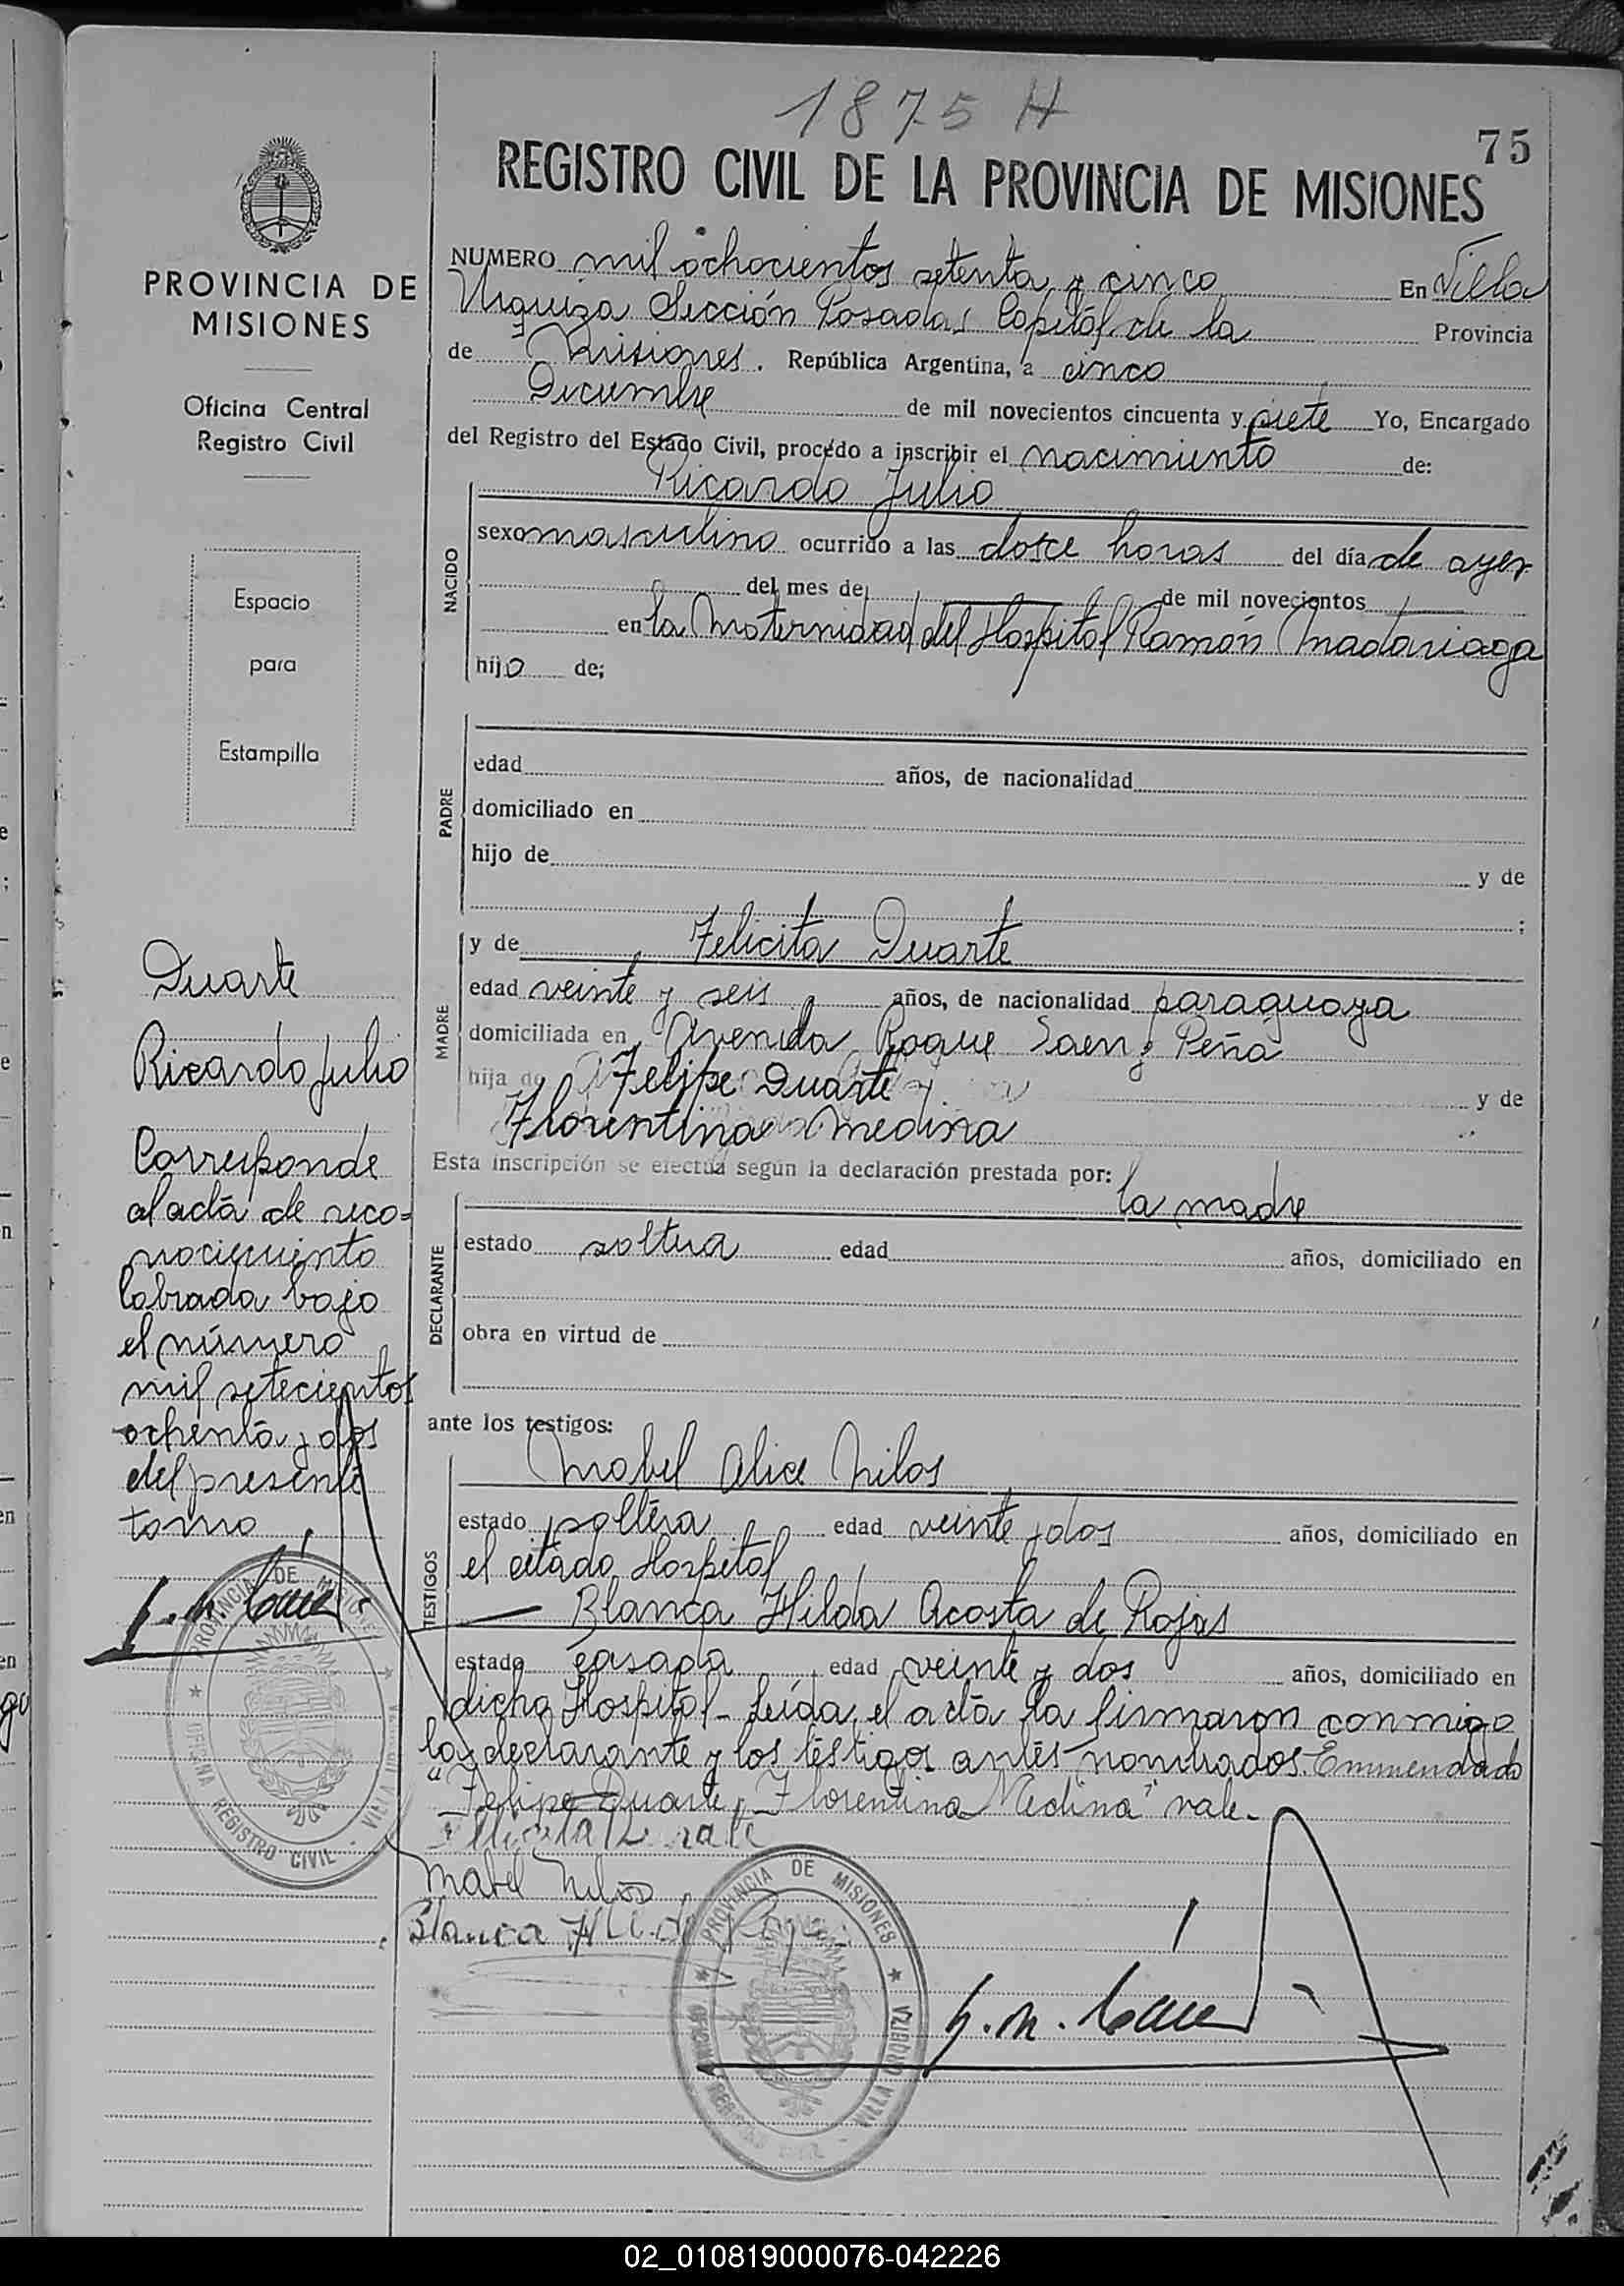 1875 H
75
REGISTRO CIVIL DE LA PROVINCIA DE MISIONES
PROVINCIA DE
MISIONES
Oficina Central
Registro Civil
Espacio
para
Estampilla
Duarte
Ricardo Julio
Corresponde
al acta de reco=
nocimiento
labrada bajo
el número
mil setecientos
ochenta y dos
del presente
tomo
PROVINCIA DE MISIONES
OFICINA REGISTRO CIVIL - VILLA URQUIZA
NUMERO mil ochocientos setenta y cinco En Villa
Urquiza Sección Posadas Capital de la Provincia
de Misiones. República Argentina, a cinco
Diciembre de mil novecientos cincuenta y siete Yo, Encargado
del Registro del Estado Civil, procedo a inscribir el nacimiento de:
Ricardo Julio
NACIDO
sexo masculino ocurrido a las dosce horas del día de ayer
del mes de de mil novecientos
en la Maternidad del Hospital Ramón Madariaga
hijo de;
PADRE
edad años, de nacionalidad
domiciliado en
hijo de y de
;
MADRE
y de Felicita Duarte
edad veinte y seis años, de nacionalidad paraguaya
domiciliada en Avenida Roque Saenz Peña
hija de Felipe Duarte y y de
Florentina Medina
Esta inscripción se efectúa según la declaración prestada por: la madre
DECLARANTE
estado soltera edad años, domiciliado en
obra en virtud de
ante los testigos:
TESTIGOS
Mabel Alice Nilos
estado soltera edad veinte y dos años, domiciliado en
el citado Hospital
Blanca Hilda Acosta de Rojas
estado casada edad veinte y dos años, domiciliado en
dicho Hospital - Leída el acta la firmaron conmigo
la declarante y los testigos antes nombrados. Emmendado
"Felipe Duarte y Florentina Medina" vale.
Mabel Nilos
Blanca
PROVINCIA DE MISIONES
OFICINA REGISTRO CIVIL - VILLA URQUIZA
02_010819000076-042226